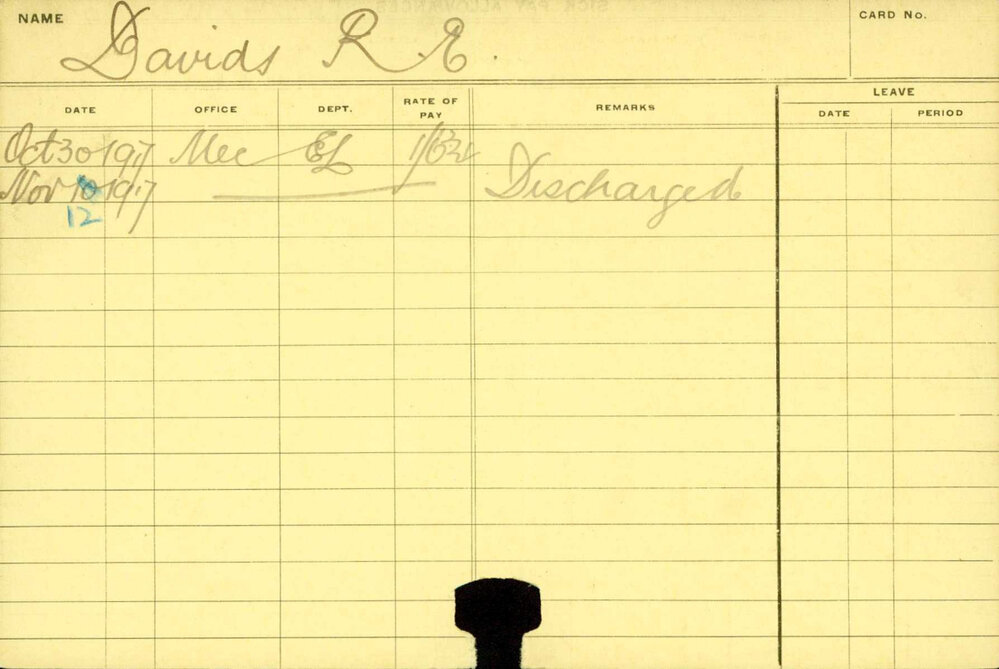 NAME Davids R E. CARD No.
DATE OFFICE DEPT. RATE OF PAY REMARKS LEAVE
DATE PERIOD
Oct 30 1917 Mec EL
Nov 10 1917 Discharged
12